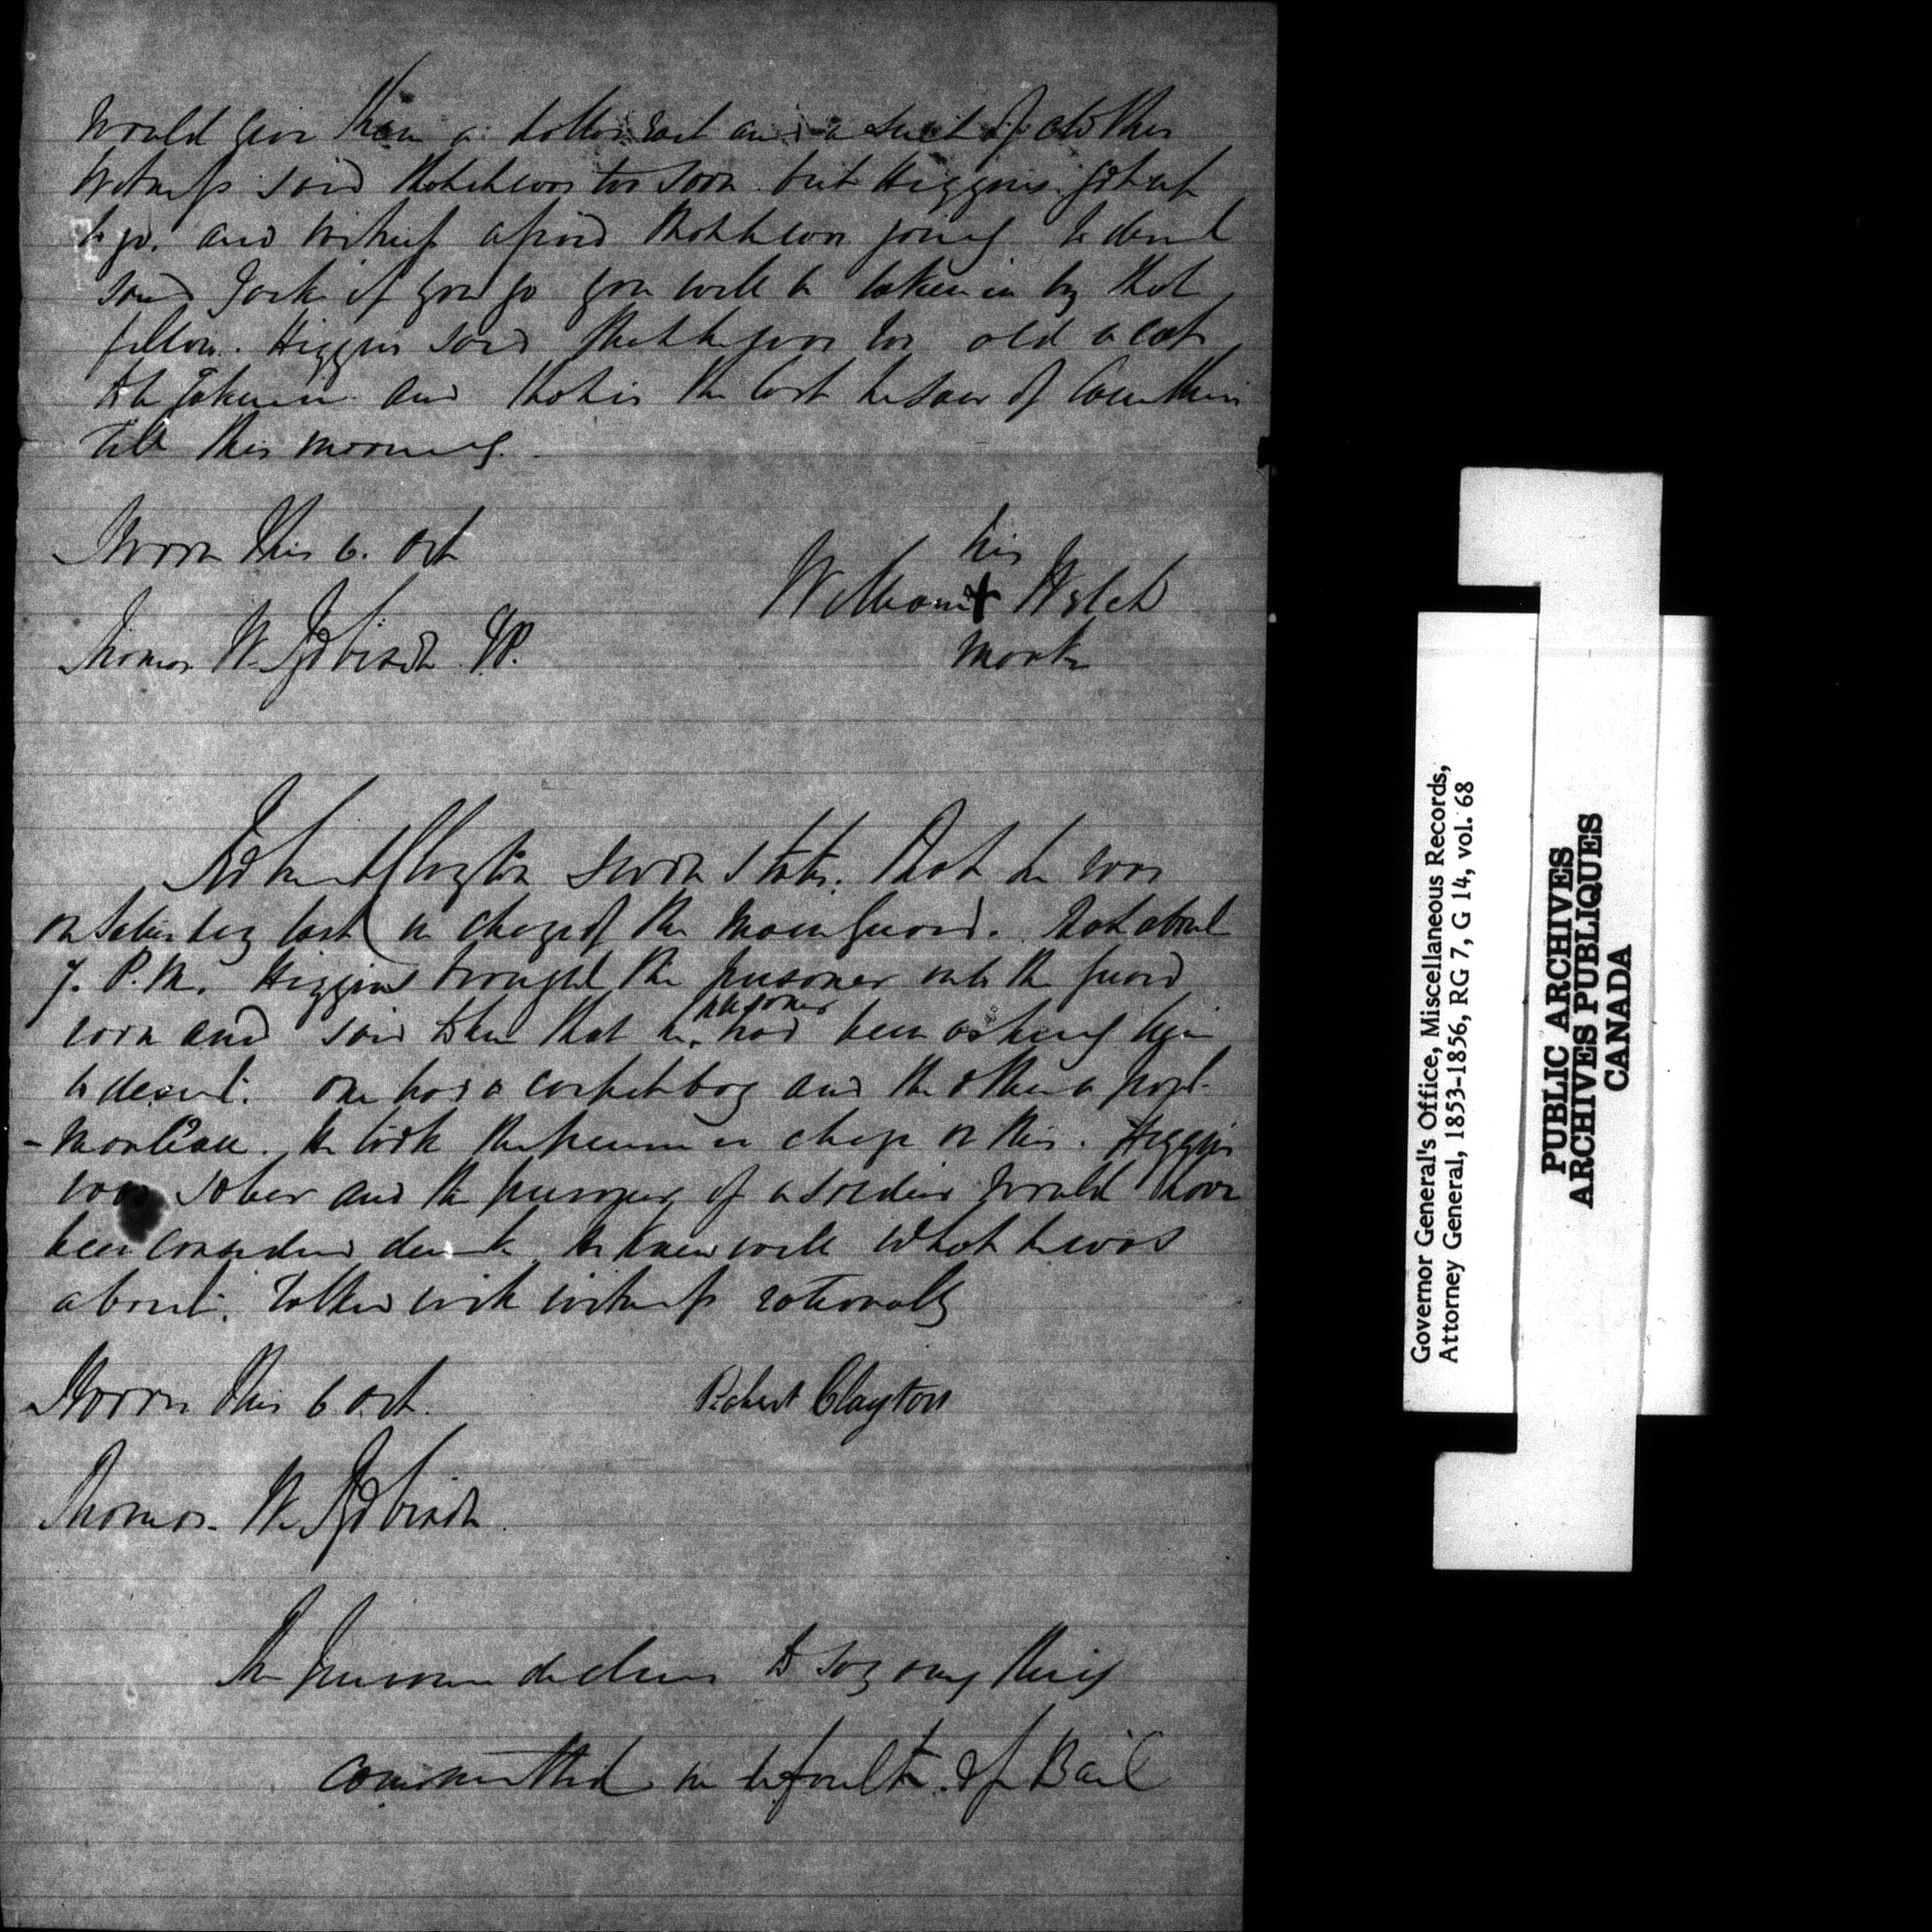 would give them a dollar each and a suit of clothes
witness said that it was too soon but Higgins got up
to go. and witness afraid that he was going to desert
said Jack if you go you will be taken in by that
fellow. Higgins said that he was too old a cat
to be taken in and that is the last he saw of
till this morning.
Sworn this 6. Oct
his
William + Welch
mark
Thomas W. Robison JP.
Robert Clayton sworn states. That he was
on Saturday last in charge of the main guard. That about
7. P.M. Higgins brought the prisoner into the guard
room and said to him that he had been asking him
prisoner
to desert. one had a carpet bag and the other a port-
-manteau. He took the prisoner in charge on this. Higgins
was sober and the prisoner if a soldier would have
been considered drunk. He knew well what he was
about. Talked with witness rationally
Sworn this 6 Oct.
Robert Clayton
Thomas W. Robison
The prisoner declines to say any thing
committed in default of Bail
Governor General's Office, Miscellaneous Records,
Attorney General, 1853-1856, RG 7, G 14, vol. 68
PUBLIC ARCHIVES
ARCHIVES PUBLIQUES
CANADA